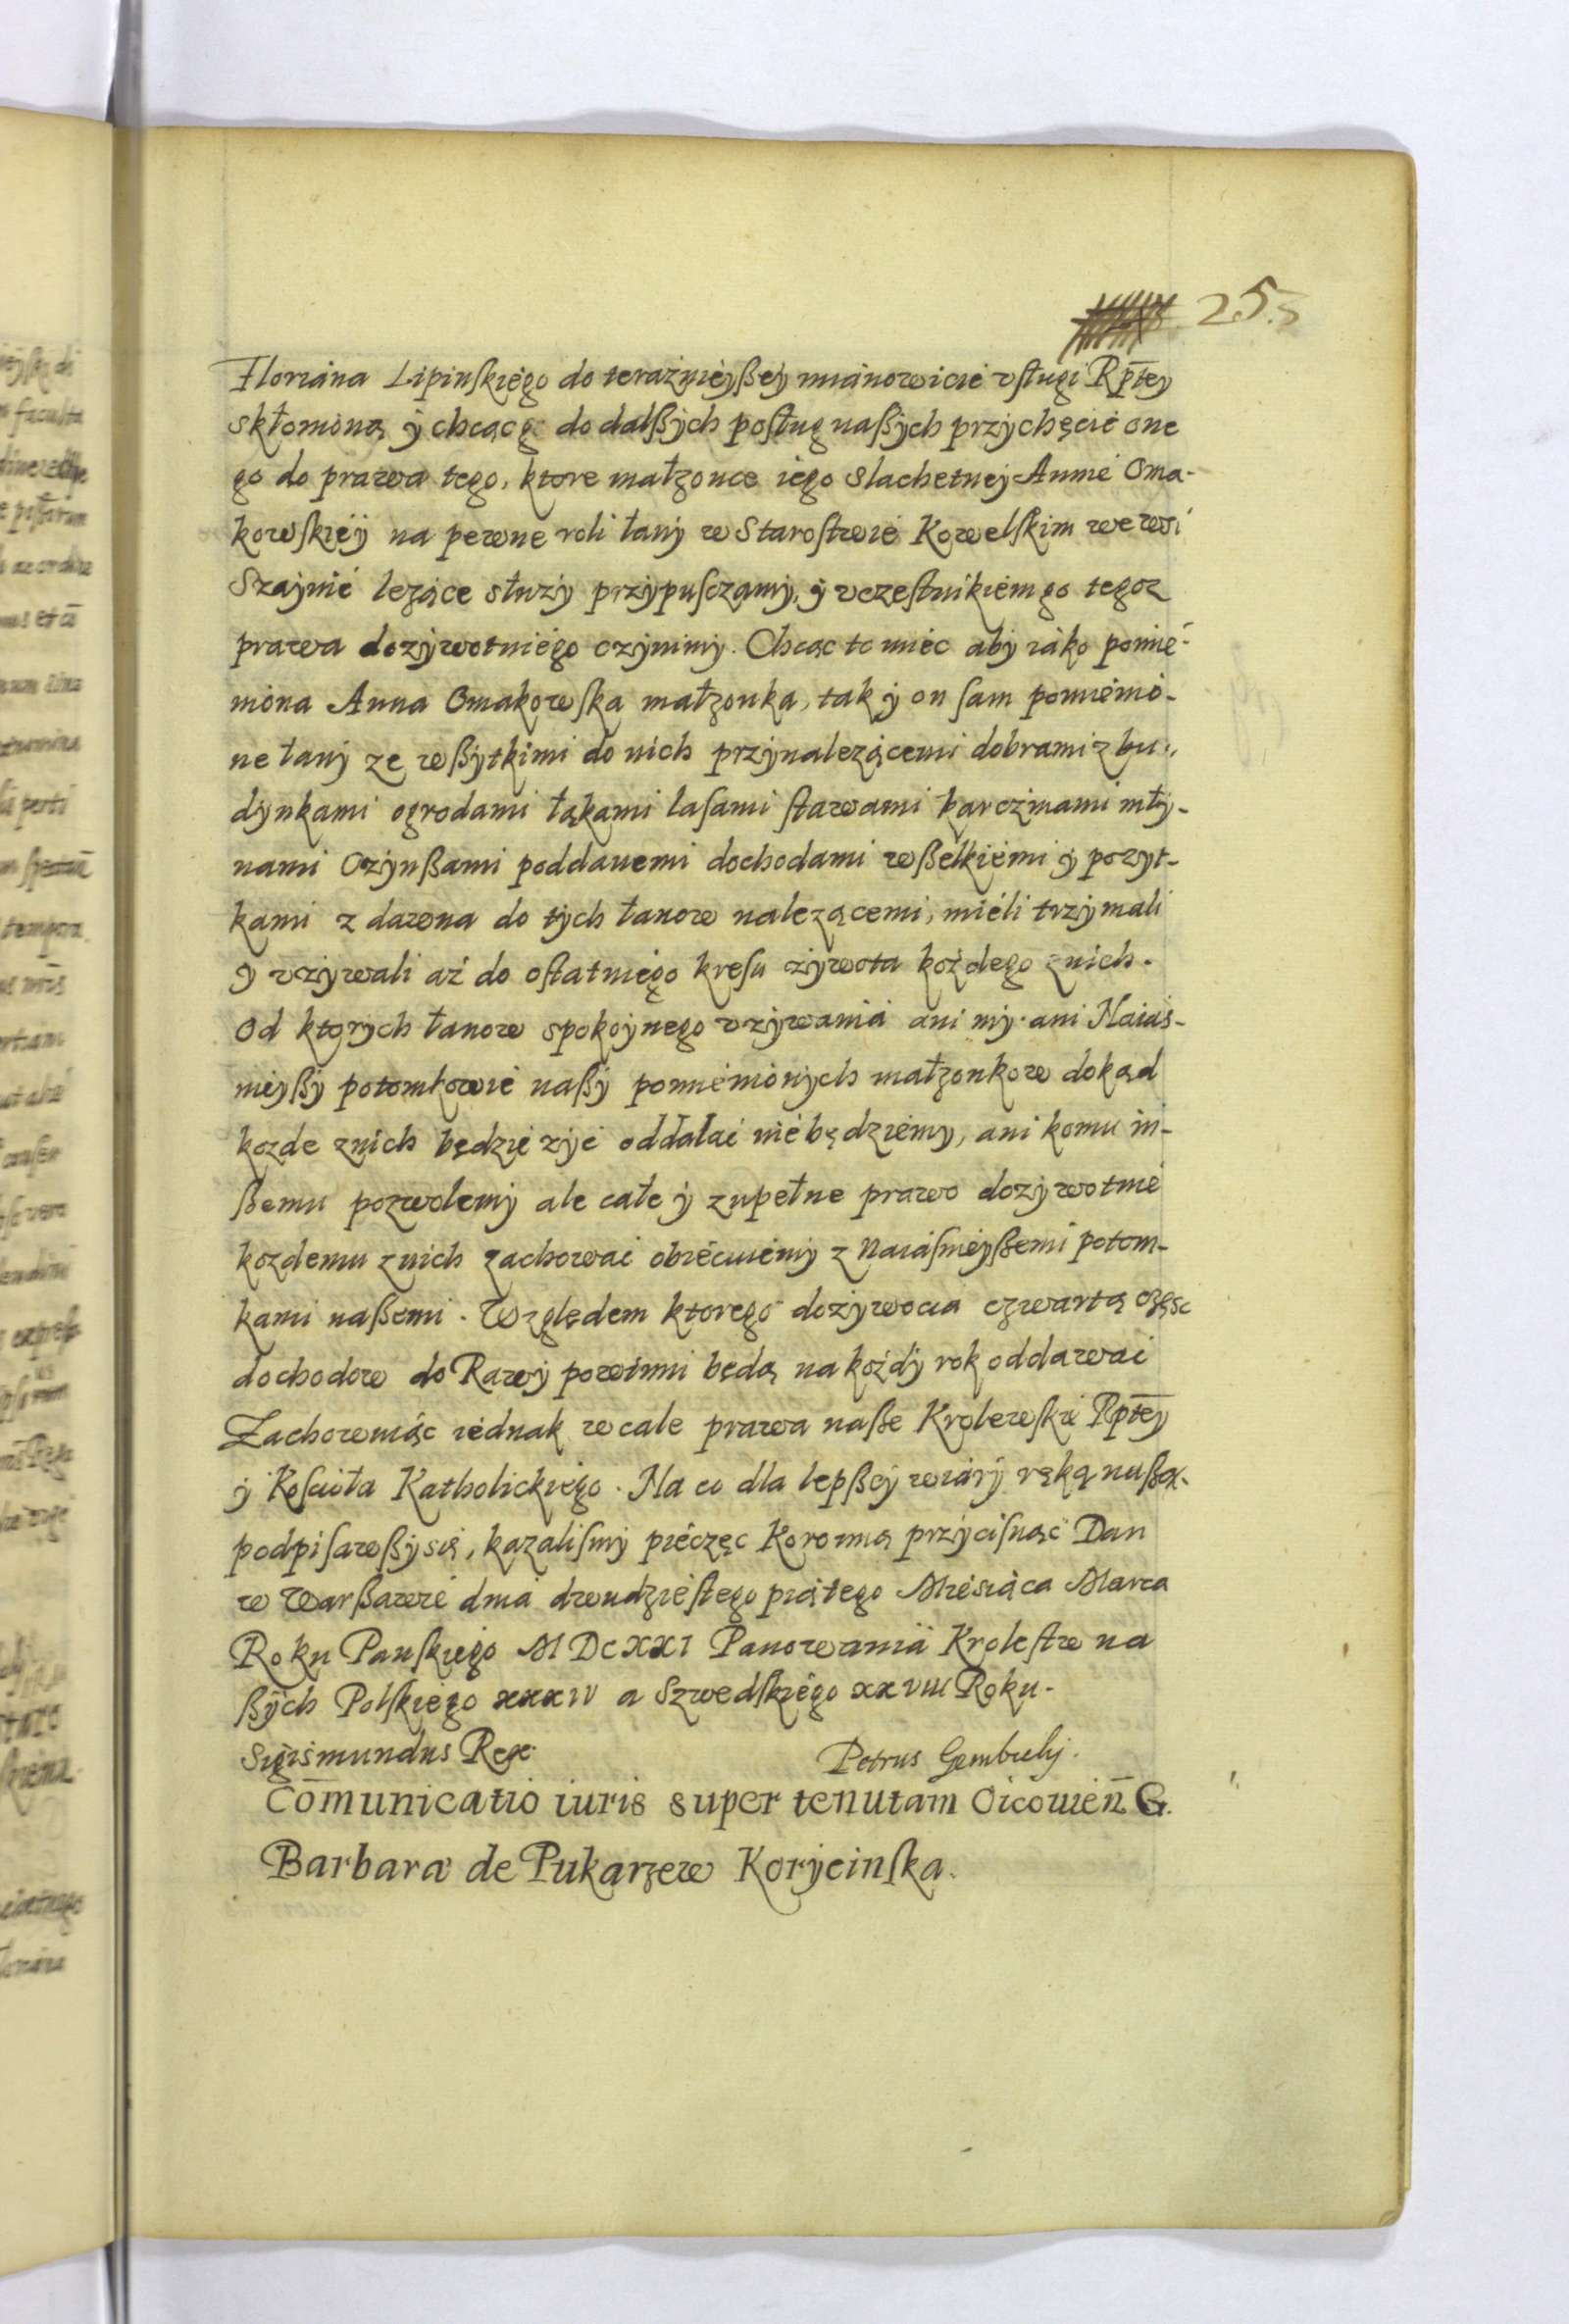 253
Floriana Lipinskiego do teraznieyßey mianowicie vsługi Rptey
skłoniona y chcąc go do dalßych posług naßych przychęcic one
go do prawa tego, ktore małzonce iego Slachetney Annie Oma-
kowskiey na pewne roli łany w Starostwie Kowelskim we wsi
Szaynie lezące słuzy przypusczamy, y vczestnikiem go tegoz
prawa dozywotniego czynimy. Chcąc to miec aby iako pomie-
niona Anna Omakowska małzonka, tak y on sam pomienio-
ne łany ze wßytkimi do nich przynalezącemi dobrami z bu-
dynkami ogrodami łąkami lasami stawami karczmami mły-
nami Czynßami poddanemi dochodami wßelkiemi y pozyt-
kami z dawna do tych łanow nalezącemi, mieli trzymali
y vzywali aż do ostatniego kresu zywota kozdego z nich.
Od ktorych łanow spokoynego vzywania ani my. ani Naias-
nieyßy potomkowie naßy pomienionych małzonkow dokąd
kozde z nich będzie zyc oddalac nie będziemy, ani komu in-
ßemu pozwolemy ale całe y zupełne prawo dozywotnie
kozdemu z nich zachowac obiecuiemy z Naiasnieyßemi potom-
kami naßemi. Względem ktorego dozywocia czwartą częsc
dochodow do Rawy powinni będą na kożdy rok oddawac
Zachowuiąc iednak wcale prawa naße Krolewskie Rptey
y Kosciola Katholickiego. Na co dla lepßey wiary ręką naßą
podpisawßy się, kazalismy pieczęc Koronną przycisnąc Dan
w Warßawie dnia dwudziestego piątego Miesiąca Marca
Roku Panskiego MDCXXI Panowania Krolestw na
ßych Polskiego xxxiv a Szwedskiego xxviii Roku.
Sigismundus Rex. Petrus Gembicki.
Cōmunicatio iuris super tenutam Oicouien̄ G.
Barbaræ de Pukarzew Korycinska.